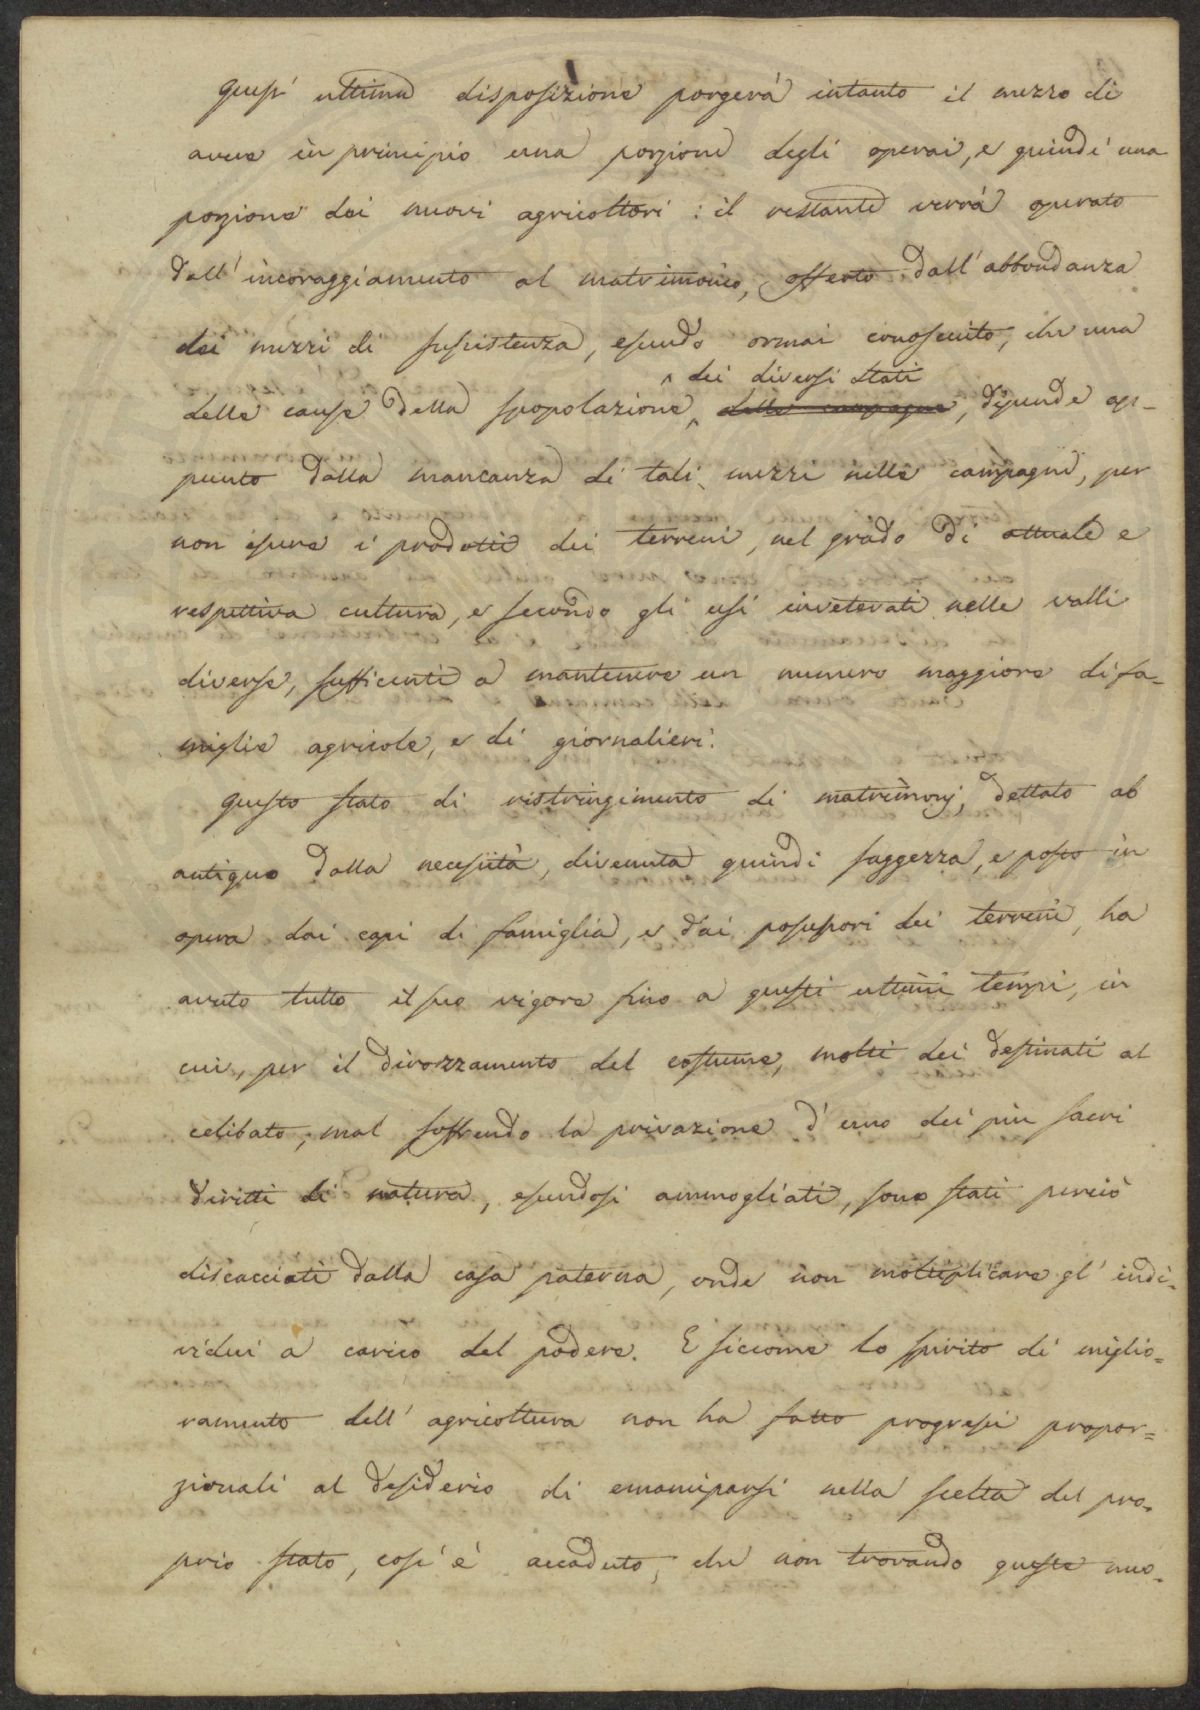 Quest' ultima disposizione porgerà intanto il mezzo di
avere in principio una porzione degli operai, e quindi una
porzione dei nuovi agricoltori: il restante verrà operato
dall'incoraggiamento al matrimonio, offerto dall'abbondanza
dei mezzi di sussistenza, essendo ormai conosciuto, che una
dei diversi stati
delle cause della spopolazione, delle campagne, dipende ap-
punto dalla mancanza di tali mezzi nelle campagne, per
non essere i prodotti dei terreni, nel grado di attuale e
respettiva cultura, e secondo gli usi inveterati nelle valli
diverse, sufficenti a mantenere un numero maggiore di fa=
miglie agricole, e di giornalieri.
Questo stato di ristringimento di matrimonj, dettato ab
antiquo dalla necessità, divenuta quindi saggezza, e posto in
opera dai capi di famiglia, e dai possessori dei terreni, ha
avuto tutto il suo vigore fino a questi ultimi tempi, in
cui, per il dirozzamento del costume, molti dei destinati al
celibato, mal soffrendo la privazione d'uno dei più sacri
diritti di natura, essendosi ammogliati, sono stati perciò
discacciati dalla casa paterna, onde non moltiplicare gl'indi=
vidui a carico del podere. E siccome lo spirito di miglio=
ramento dell'agricoltura non ha fatto progressi propor=
zionali al desiderio di emanciparsi nella scelta del pro=
prio stato, così è accaduto, che non trovando queste nuo=